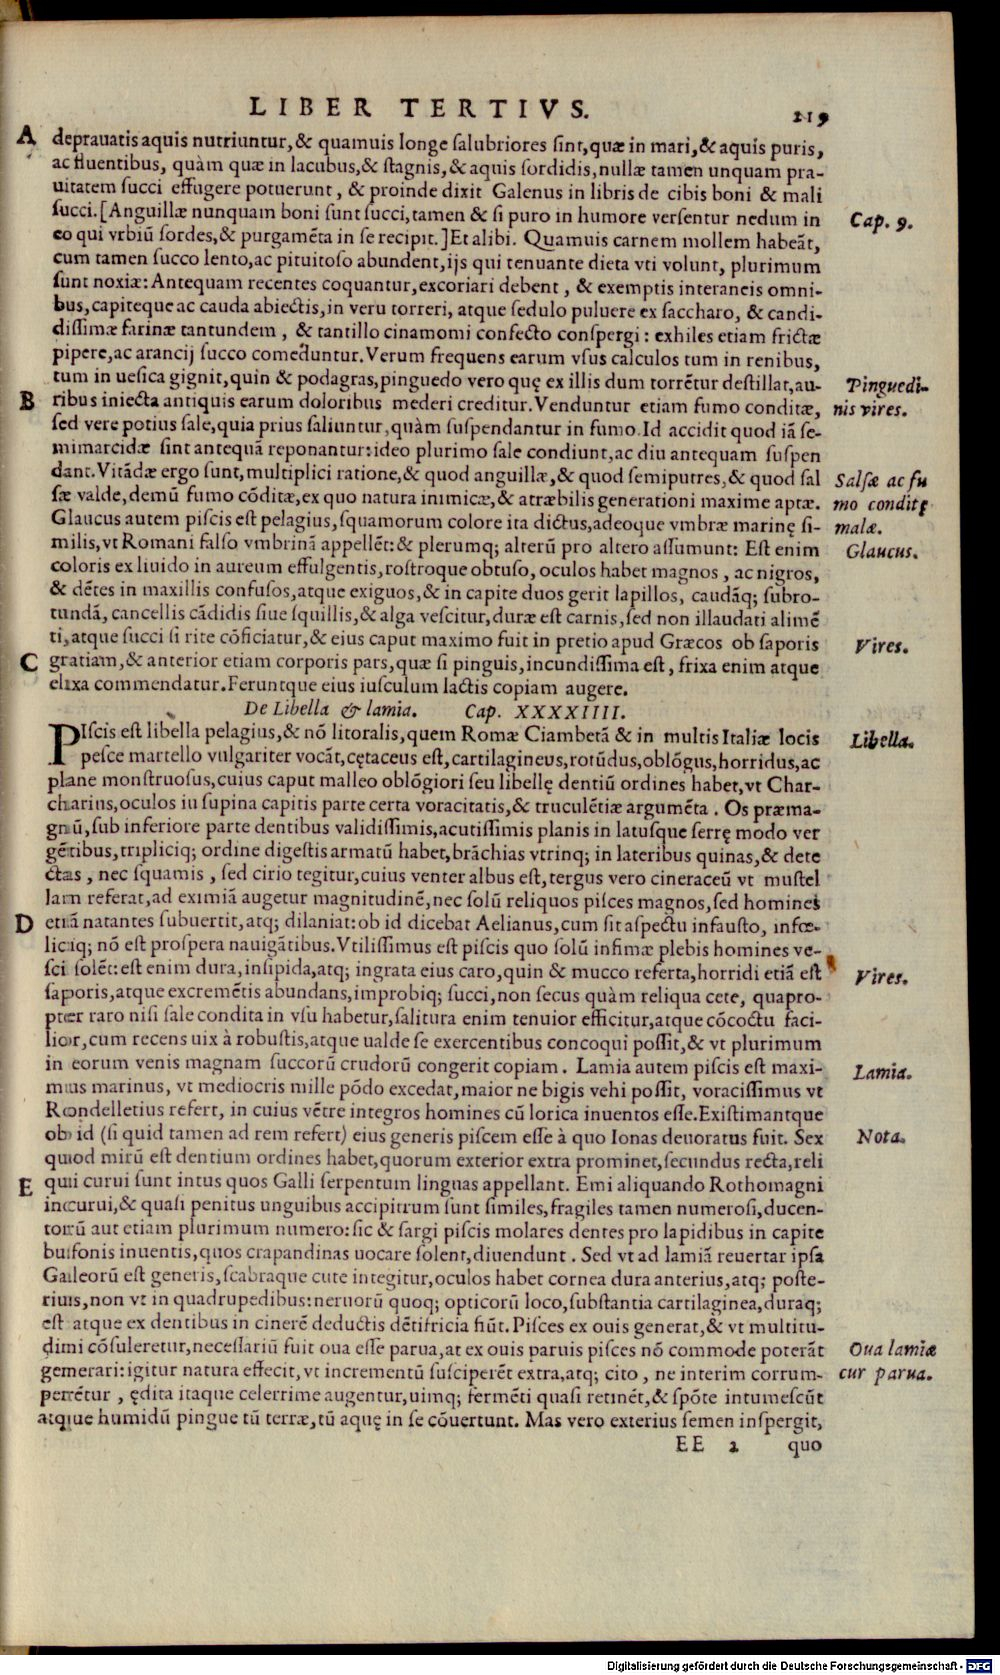 LIBER TERTIVS. 219
A deprauatis aquis nutriuntur,& quamuis longe salubriores sint,quæ in mari,& aquis puris,
ac fluentibus, quàm quæ in lacubus,& stagnis,& aquis sordidis,nullæ tamen unquam pra-
uitatem succi effugere potuerunt, & proinde dixit Galenus in libris de cibis boni & mali
succi.[Anguillæ nunquam boni sunt succi,tamen & si puro in humore versentur nedum in Cap. 9.
eo qui vrbiū sordes,& purgamēta in se recipit.]Et alibi. Quamuis carnem mollem habeāt,
cum tamen succo lento,ac pituitoso abundent,ijs qui tenuante dieta vti volunt, plurimum
sunt noxiæ: Antequam recentes coquantur,excoriari debent, & exemptis interaneis omni-
bus,capiteque ac cauda abiectis,in veru torreri, atque sedulo puluere ex saccharo, & candi-
dissimæ farinæ tantundem, & tantillo cinamomi confecto conspergi: exhiles etiam frictæ
pipere,ac arancij succo comeduntur.Verum frequens earum vsus calculos tum in renibus,
tum in uesica gignit,quin & podagras,pinguedo vero quę ex illis dum torrētur destillat,au- Pinguedi-
B ribus iniecta antiquis earum doloribus mederi creditur.Venduntur etiam fumo conditæ, nis vires.
sed vere potius sale,quia prius saliuntur,quàm suspendantur in fumo.Id accidit quod iā se-
mimarcidæ sint antequā reponantur:ideo plurimo sale condiunt,ac diu antequam suspen
dant.Vitādæ ergo sunt,multiplici ratione,& quod anguillæ,& quod semiputres,& quod sal Salsæ ac fu
sæ valde,demū fumo cōditæ,ex quo natura inimicæ,& atræbilis generationi maxime aptæ. mo conditę
Glaucus autem piscis est pelagius,squamorum colore ita dictus,adeoque vmbræ marinę si- malæ.
milis,vt Romani falso vmbrinā appellēt:& plerumq; alterū pro altero assumunt: Est enim Glaucus.
coloris ex liuido in aureum effulgentis,rostroque obtuso, oculos habet magnos, ac nigros,
& dētes in maxillis confusos,atque exiguos,& in capite duos gerit lapillos, caudāq; subro-
tundā, cancellis cādidis siue squillis,& alga vescitur,duræ est carnis,sed non illaudati alimē
ti,atque succi si rite cōficiatur,& eius caput maximo fuit in pretio apud Græcos ob saporis Vires.
C gratiam,& anterior etiam corporis pars,quæ si pinguis,iucundissima est, frixa enim atque
elixa commendatur.Feruntque eius iusculum lactis copiam augere.
De Libella & lamia. Cap. XXXXIIII.
PIscis est libella pelagius,& nō litoralis,quem Romæ Ciambetā & in multis Italiæ locis Libella.
pesce martello vulgariter vocāt,cętaceus est,cartilagineus,rotūdus,oblōgus,horridus,ac
plane monstruosus,cuius caput malleo oblōgiori seu libellę dentiū ordines habet,vt Char-
charius,oculos in supina capitis parte certa voracitatis,& truculētiæ argumēta. Os præma-
gnū,sub inferiore parte dentibus validissimis,acutissimis planis in latusque serrę modo ver
gētibus,tripliciq; ordine digestis armatū habet,brāchias vtrinq; in lateribus quinas,& dete
ctas, nec squamis, sed cirio tegitur,cuius venter albus est,tergus vero cineraceū vt mustel
lam referat,ad eximiā augetur magnitudinē,nec solū reliquos pisces magnos,sed homines
D etiā natantes subuertit,atq; dilaniat:ob id dicebat Aelianus,cum sit aspectu infausto, infœ-
liciq; nō est prospera nauigātibus.Vtilissimus est piscis quo solū infimæ plebis homines ve-
sci solēt:est enim dura,insipida,atq; ingrata eius caro,quin & mucco referta,horridi etiā est Vires.
saporis,atque excremētis abundans,improbiq; succi,non secus quàm reliqua cete, quapro-
pter raro nisi sale condita in vsu habetur,salitura enim tenuior efficitur,atque cōcoctu faci-
lior,cum recens uix à robustis,atque ualde se exercentibus concoqui possit,& vt plurimum
in eorum venis magnam succorū crudorū congerit copiam. Lamia autem piscis est maxi- Lamia.
mus marinus, vt mediocris mille pōdo excedat,maior ne bigis vehi possit, voracissimus vt
Rondelletius refert, in cuius vētre integros homines cū lorica inuentos esse.Existimantque
ob id (si quid tamen ad rem refert) eius generis piscem esse à quo Ionas deuoratus fuit. Sex Nota.
quod mirū est dentium ordines habet,quorum exterior extra prominet,secundus recta,reli
E qui curui sunt intus quos Galli serpentum linguas appellant. Emi aliquando Rothomagni
incurui,& quasi penitus unguibus accipitrum sunt similes,fragiles tamen numerosi,ducen-
torū aut etiam plurimum numero:sic & sargi piscis molares dentes pro lapidibus in capite
bufonis inuentis,quos crapandinas uocare solent,diuendunt. Sed vt ad lamiā reuertar ipsa
Galeorū est generis,scabraque cute integitur,oculos habet cornea dura anterius,atq; poste-
rius,non vt in quadrupedibus:neruorū quoq; opticorū loco,substantia cartilaginea,duraq;
est atque ex dentibus in cinerē deductis dētifricia fiūt.Pisces ex ouis generat,& vt multitu-
dimi cōsuleretur,necessariū fuit oua esse parua,at ex ouis paruis pisces nō commode poterāt Oua lamiæ
gemerari:igitur natura effecit,vt incrementū susciperēt extra,atq; cito, ne interim corrum- cur parua.
perētur, ędita itaque celerrime augentur,uimq; fermēti quasi retinēt,& spōte intumescūt
atque humidū pingue tū terræ,tū aquę in se cōuertunt. Mas vero exterius semen inspergit,
EE 2 quo
Digitalisierung gefördert durch die Deutsche Forschungsgemeinschaft - DFG